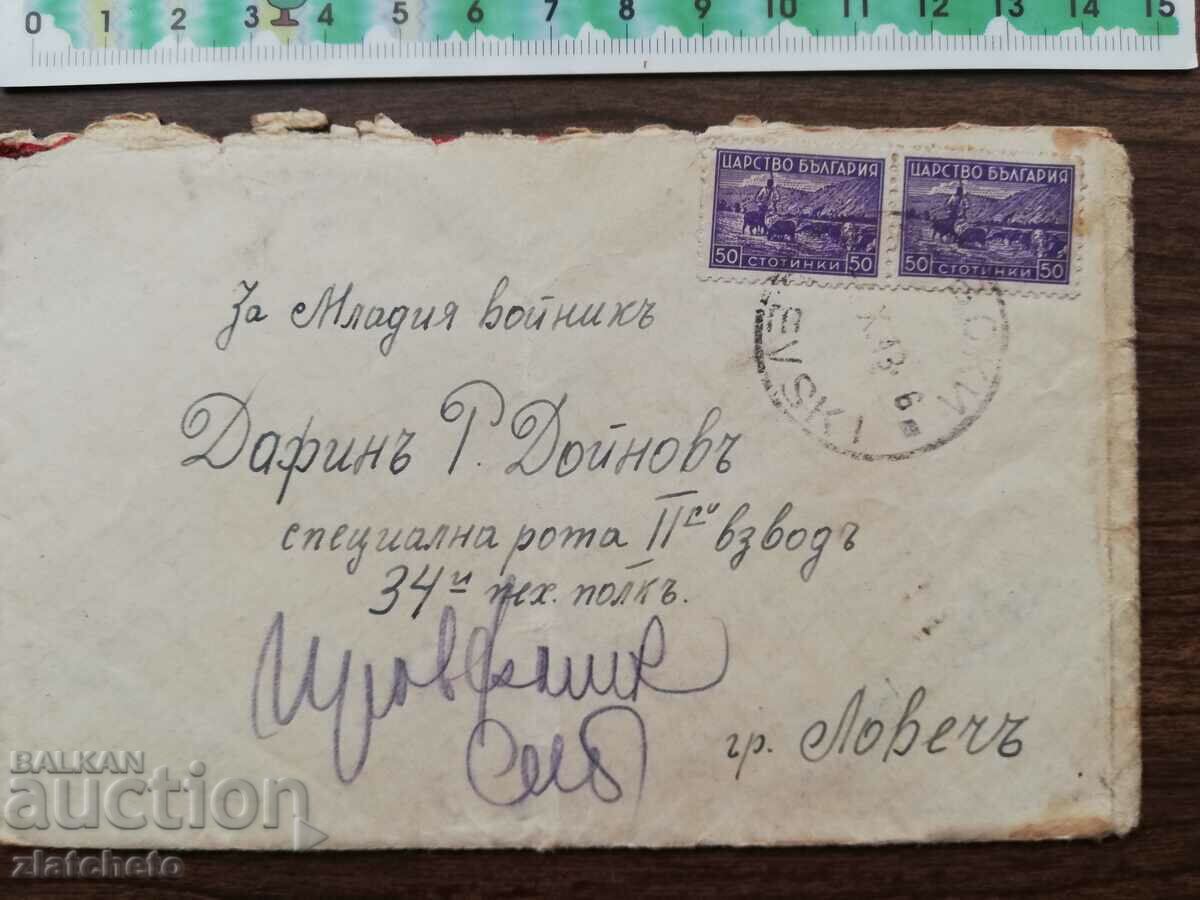 0 1 2 3 4 5 6 7 8 9 10 11 12 13 14 15
ЦАРСТВО БЪЛГАРИЯ
50 СТОТИНКИ 50
ЦАРСТВО БЪЛГАРИЯ
50 СТОТИНКИ 50
EVSKI
За Младия войникъ
Дафинъ Г. Дойновъ
специална рота IIри взводъ
34и пех. полкъ.
гр. Ловечъ
BALKAN
auction
zlatcheto